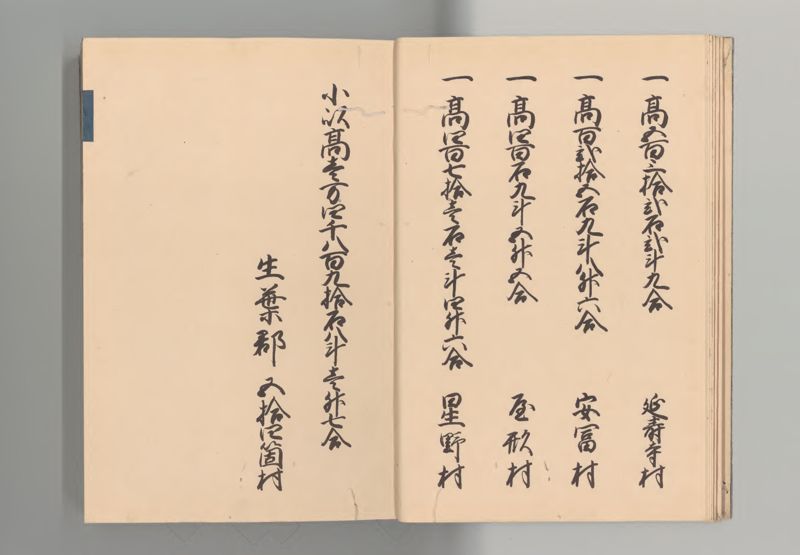 一 高五百三拾弐石弐斗九合 延寿寺村
一 高百弐拾五石九斗八升六合 安冨村
一 高四百石九斗五升五合 屋形村
一 高四百七拾壱石壱斗四升六合 星野村
小以高壱万四千八百九拾石八斗壱升七合
生葉郡 五拾四箇村